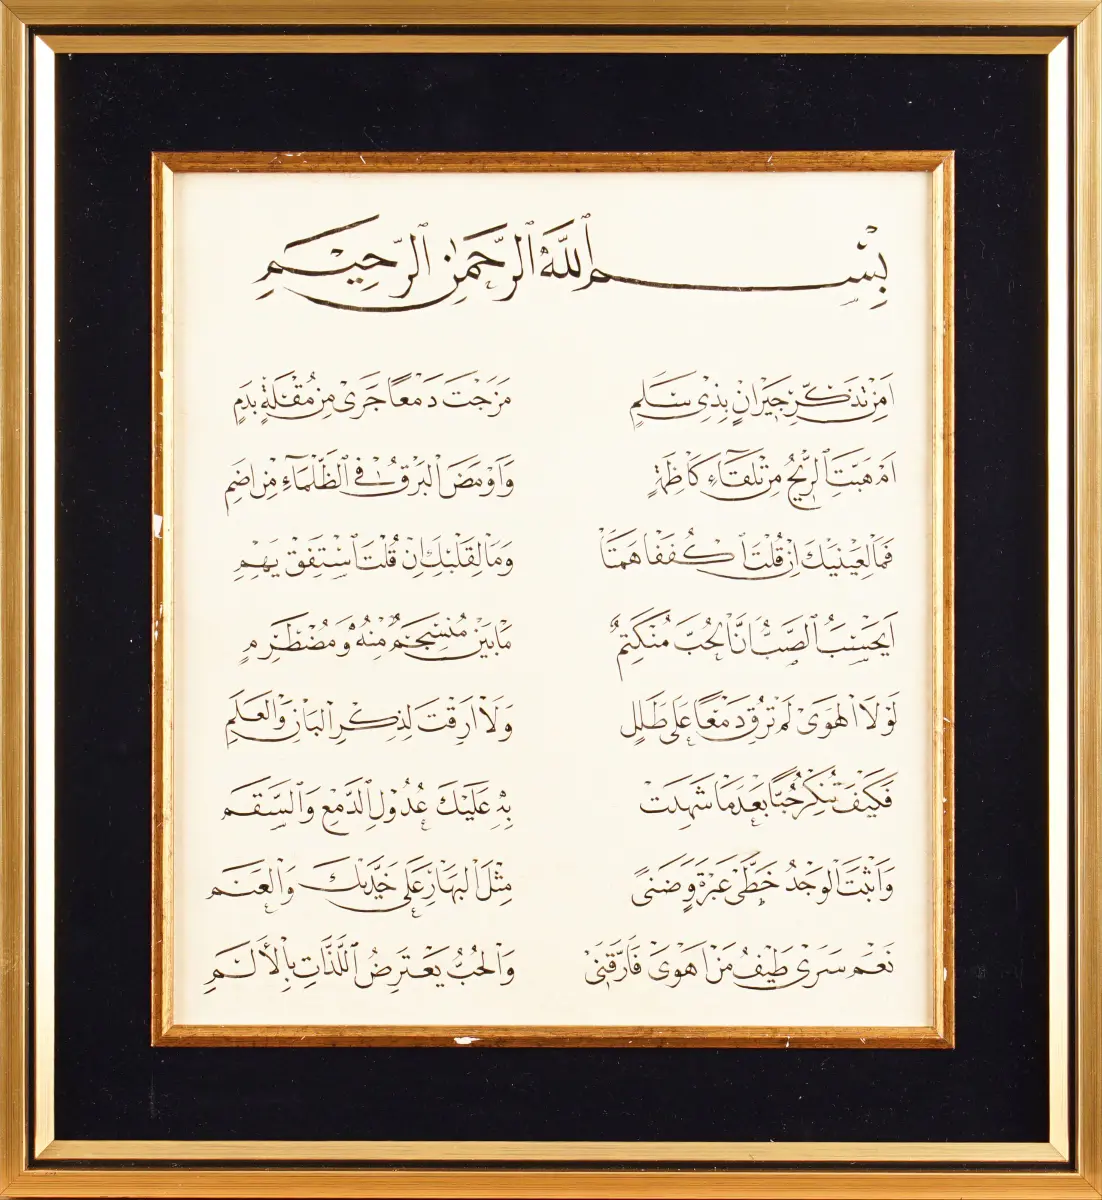 بِسْمِ اللَّهِ الرَّحْمٰنِ الرَّحِيمِ
اَمِنْ تَذَكُّرِ جِيرَانٍ بِذِى سَلَمِ مَزَجْتَ دَمْعًا جَرَى مِنْ مُقْلَةٍ بِدَمِ
اَمْ هَبَّتِ الرِّيحُ مِنْ تِلْقَاءِ كَاظِمَةٍ وَاَوْمَضَ الْبَرْقُ فِى الظَّلْمَاءِ مِنْ اِضَمِ
فَمَا لِعَيْنَيْكَ اِنْ قُلْتَ اكْفُفَا هَمَتَا وَمَا لِقَلْبِكَ اِنْ قُلْتَ اسْتَفِقْ يَهِمِ
اَيَحْسَبُ الصَّبُّ اَنَّ الْحُبَّ مُنْكَتِمٌ مَا بَيْنَ مُنْسَجِمٍ مِنْهُ وَمُضْطَرِمِ
لَوْلَا الْهَوَى لَمْ تُرِقْ دَمْعًا عَلَى طَلَلِ وَلَا اَرِقْتَ لِذِكْرِ الْبَانِ وَالْعَلَمِ
فَكَيْفَ تُنْكِرُ حُبًّا بَعْدَ مَا شَهِدَتْ بِهِ عَلَيْكَ عُدُولُ الدَّمْعِ وَالسَّقَمِ
وَاَثْبَتَ الْوَجْدُ خَطَّىْ عَبْرَةٍ وَضَنًى مِثْلَ الْبَهَارِ عَلَى خَدَّيْكَ وَالْعَنَمِ
نَعَمْ سَرَى طَيْفُ مَنْ اَهْوَى فَاَرَّقَنِى وَالْحُبُّ يَعْتَرِضُ اللَّذَّاتِ بِالْأَلَمِ